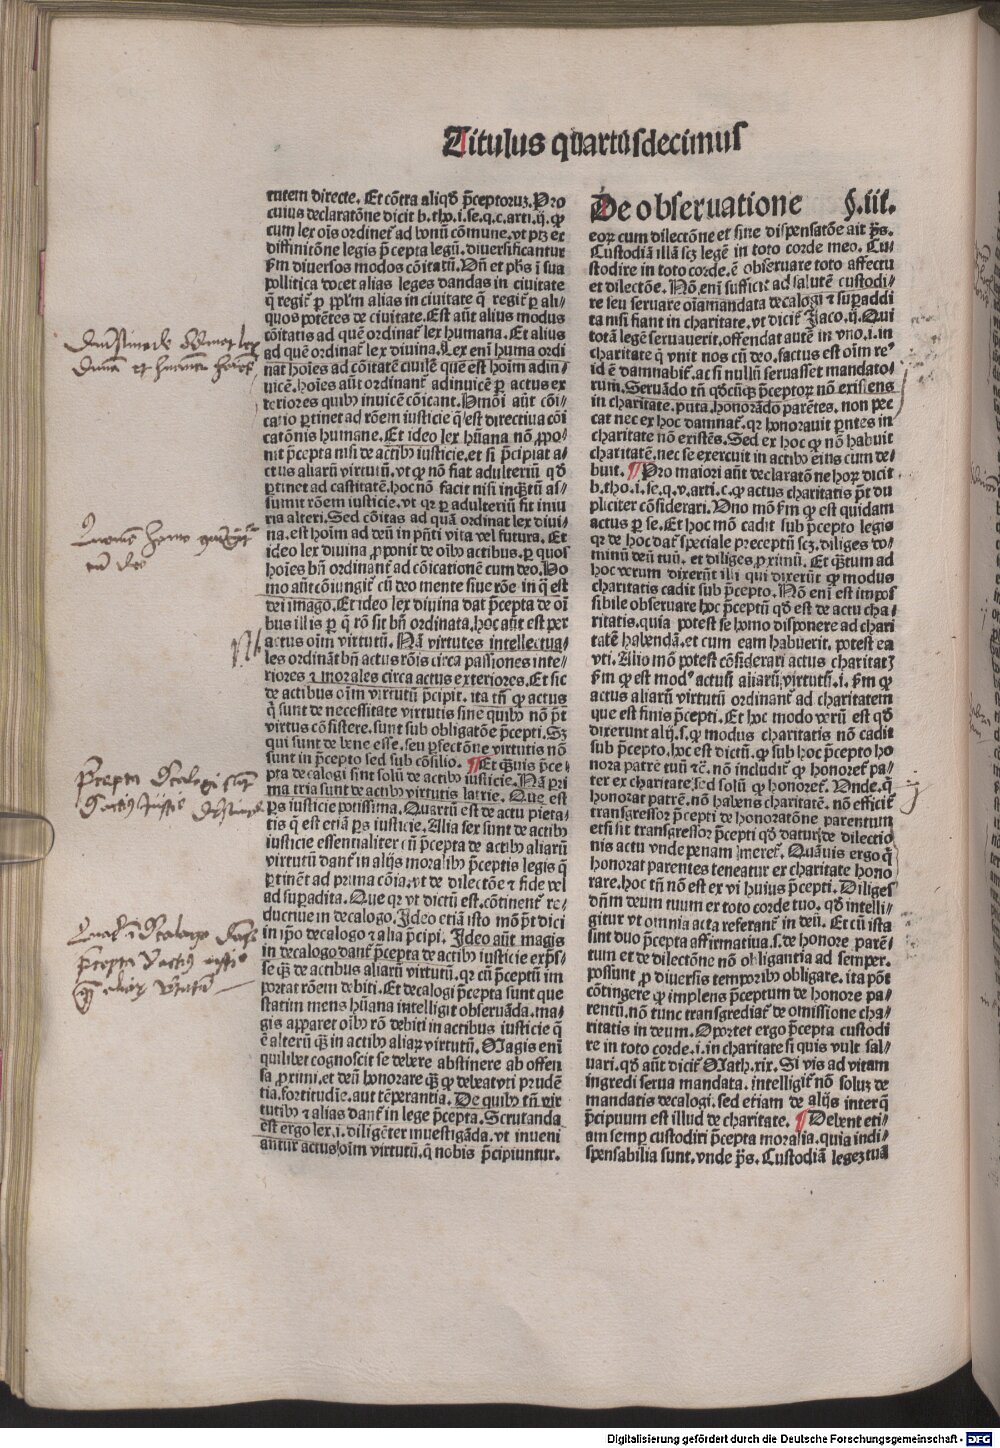 Titulus quartusdecimus
tutem directe. Et cõtra aliqd̃ p̃ceptorum. Pro
cuius declaratõne dicit b. tho. i. se. q. c. arti. ij. qꝙ
cum lex oĩs ordinet̃ ad bonũ cõmune. vt ptꝫ ex
diffinitõne legis p̃cepta legũ. diuersificantur
ẜm diuersos modos cõitatũ. Vñ et ph̃s i sua
pollitica docet alias leges dandas in ciuitate
q̃ regit̃ ꝑ ppl̃m alias in ciuitate q̃ regit̃ ꝑ ali⸗
quos potẽtes de ciuitate. Est aũt alius modus
cõitatis ad quẽ ordinat̃ lex humana. Et alius
ad quẽ ordinat̃ lex diuina. Lex eni huma ordi
nat hoĩes ad cõitatẽ ciuilẽ que est hoĩm adin⸗
uicẽ. hoĩes aũt ordinant̃ adinuicẽ ꝑ actus ex
teriores quibꝰ inuicẽ cõicant. Hmõi aũt cõi⸗
catio ꝑtinet ad rõem iusticie q̃ est directiua cõi
catõnis humane. Et ideo lex hũana nõ ꝓpo⸗
nit p̃cepta nisi de actibꝰ iusticie. et si p̃cipiat a⸗
ctus aliarũ virtutũ. vt ꝙ nõ fiat adulteriũ qd̃
ꝑtinet ad castitatẽ. hoc nõ facit nisi inq̃tũ as⸗
sumit rõem iusticie. vt qꝛ ꝑ adulteriũ fit iniu
ria alteri. Sed cõitas ad quã ordinat lex diui⸗
na. est hoĩm ad deũ in p̃nti vita vel futura. Et
ideo lex diuina ꝓponit de oĩbꝰ actibus. ꝑ quos
hoĩes bñ ordinant̃ ad cõicationẽ cum deo. Ho
mo aũt cõiungit̃ cũ deo mente siue rõe in q̃ est
dei imago. Et ideo lex diuina dat p̃cepta de oĩ
bus illis ꝑ q̃ rõ sit bñ ordinata. hoc aũt est per
actus oĩm virtutũ. Nã virtutes intellectua⸗
les ordinãt bñ actus rõis circa passiones inte⸗
riores ⁊ morales circa actus exteriores. Et sic
de actibus oĩm virtutũ p̃cipit. ita tñ ꝙ actus
q̃ sunt de necessitate virtutis sine quibꝰ nõ p̃t
virtus cõsistere. sunt sub obligatõe p̃cepti. Sꝫ
qui sunt de bene esse. seu ꝑfectõne virtutis nõ
sunt in p̃cepto sed sub cõsilio. ¶ Et q̃uis p̃ce⸗
pta decalogi sint solũ de actibꝰ iusticie. Nã pri
ma tria sunt de actibꝰ virtutis latrie. Que est
ꝑs iusticie potissima. Quartũ est de actu pieta⸗
tis q̃ est etiã ꝑs iusticie. Alia sex sunt de actibꝰ
iusticie essentialiter cũ p̃cepta de actibꝰ aliarũ
virtutũ dant̃ in alijs moralibꝰ p̃ceptis legis q̃
ꝑtinẽt ad prima cõia. vt de dilectõe ⁊ fide vel
ad suꝑadita. Que qꝛ vt dictũ est. cõtinent̃ re⸗
ductiue in decalogo. Ideo etiã isto mõ p̃t dici
in ip̃o decalogo ⁊ alia p̃cipi. Ideo aũt magis
in decalogo dant̃ p̃cepta de actibꝰ iusticie exp̃s⸗
se q̃ de actibus aliarũ virtutũ. qꝛ cũ p̃ceptũ im
portat rõem debiti. Et decalogi p̃cepta sunt que
statim mens hũana intelligit obseruãda. ma⸗
gis apparet oĩbꝰ rõ debiti in actibus iusticie q̃
ẽ alterũ q̃ in actibꝰ aliaꝝ virtutũ. Magis eni
quilibet cognoscit se debere abstinere ab offen
sa proximi. et deũ honorare q̃ ꝙ debeat vti prudẽ
tia. fortitudĩe. aut tẽperantia. De quibꝰ tñ vir
tutibꝰ ⁊ alias dant̃ in lege p̃cepta. Scrutanda
est ergo lex. i. diligẽter inuestigãda. vt inueni
antur actus oĩm virtutũ. q̃ nobis p̃cipiuntur.
De obseruatione §. iii.
eoꝝ cum dilectõne et sine dispensatõe ait p̃s.
Custodiã illã scꝫ legẽ in toto corde meo. Cu⸗
stodire in toto corde. ẽ obseruare toto affectu
et dilectõe. Nõ eni sufficit ad salutẽ custodi⸗
re seu seruare oĩa mandata decalogi ⁊ suꝑaddi
ta nisi fiant in charitate. vt dicit Jaco. ij. Qui
totã legẽ seruauerit. offendat autẽ in vno. i. in
charitate q̃ vnit nos cũ deo. factus est oĩm reꝰ
id ẽ damnabit̃. ac si nullũ seruasset mandato⸗
rum. Seruãdo tñ qd̃cũqꝫ p̃ceptoꝝ nõ existens
in charitate. puta honorãdo parẽtes. non pec
cat nec ex hoc damnat̃. qꝛ honorauit p̃ntes in
charitate nõ existẽs. Sed ex hoc ꝙ nõ habuit
charitatẽ. nec se exercuit in actibꝰ eiꝰ cum de⸗
buit. ¶ Pro maiori aũt declaratõne hoꝝ dicit
b. tho. i. se. q. v. arti. c. ꝙ actus charitatis p̃t du
pliciter cõsiderari. Vno mõ ẜm ꝙ est quidam
actus ꝑ se. Et hoc mõ cadit sub p̃cepto legis
qꝛ de hoc dat̃ speciale preceptũ scꝫ. diliges do⸗
minũ deũ tuũ. et diliges ꝓximũ. Et q̃tum ad
hoc verum dixerũt illi qui dixerũt ꝙ modus
charitatis cadit sub p̃cepto. Nõ eni est impos
sibile obseruare hoc p̃ceptũ qd̃ est de actu cha⸗
ritatis. quia potest se homo disponere ad chari
tatẽ habendã. et cum eam habuerit. potest ea
vti. Alio mõ potest cõsiderari actus charitatꝫ
ẜm ꝙ est modꝰ actuũ aliarũ virtutũ. i. ẜm ꝙ
actus aliarũ virtutũ ordinant̃ ad charitatem
que est finis p̃cepti. Et hoc modo verũ est qd̃
dixerunt alij. s. ꝙ modus charitatis nõ cadit
sub p̃cepto. hoc est dictũ. ꝙ sub hoc p̃cepto ho
nora patrẽ tuũ ⁊c̃. nõ includit̃ ꝙ honoret̃ pa⸗
ter ex charitate. sed solũ ꝙ honoret̃. Vnde. q̃
honorat patrẽ. nõ habens charitatẽ. nõ efficit̃
transgressor p̃cepti de honoratõne parentum
etsi sit transgressor p̃cepti qd̃ datur de dilectio
nis actu vnde penam meret̃. Quãuis ergo q̃
honorat parentes teneatur ex charitate hono
rare. hoc tñ nõ est ex vi huius p̃cepti. Diliges
dñm deum tuum ex toto corde tuo. qd̃ intelli⸗
gitur vt omnia acta referant̃ in deũ. Et cũ ista
sint duo p̃cepta affirmatiua. s. de honore parẽ⸗
tum et de dilectõne nõ obligantia ad semper.
possunt ꝓ diuersis temporibꝰ obligare. ita põt
cõtingere ꝙ implens p̃ceptum de honore pa⸗
rentũ. nõ tunc transgrediat̃ de omissione cha⸗
ritatis in deum. Oportet ergo p̃cepta custodi
re in toto corde. i. in charitate si quis vult sal⸗
uari. qd̃ aũt dicit̃ Math. xix. Si vis ad vitam
ingredi serua mandata. intelligit̃ nõ soluꝫ de
mandatis decalogi. sed etiam de alijs inter q̃
p̃cipuum est illud de charitate. ¶ Debent eti⸗
am semp̃ custodiri p̃cepta moralia. quia indi⸗
spensabilia sunt. vnde p̃s. Custodiã legeꝫ tuã
Digitalisierung gefördert durch die Deutsche Forschungsgemeinschaft - DFG